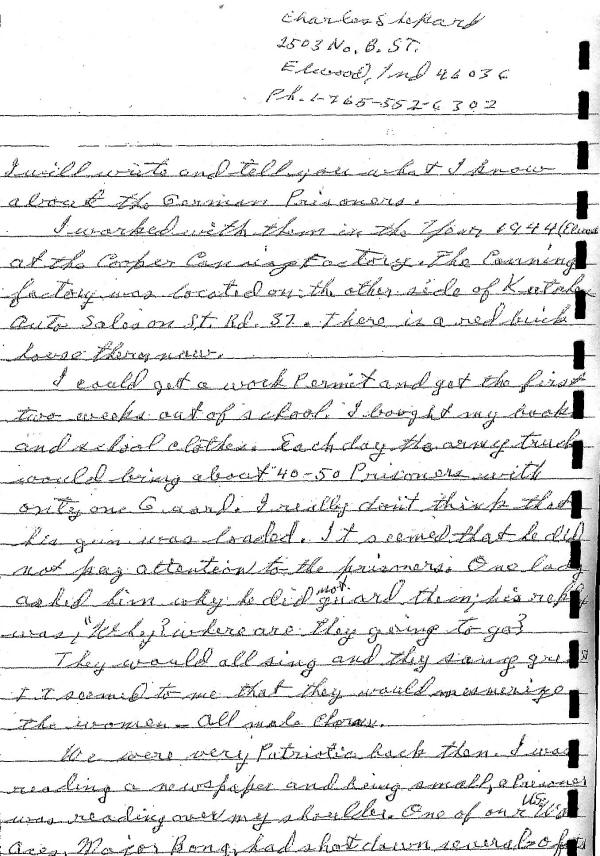 Charles Shepard
2503 No. B. ST.
Elwood, Ind 46036
Ph. 1-765-552-6302
I will write and tell you what I know
about the German Prisoners.
I worked with them in the Year 1944 (Elwood
at the Cooper Canning Factory. The Canning
factory was located on the other side of
Auto Sales on St. Rd. 37. There is a red brick
house there now.
I could get a work Permit and get the first
two weeks out of school. I bought my books
and school clothes. Each day the army truck
would bring about 40-50 Prisoners with
only one Guard. I really don't think that
his gun was loaded. It seemed that he did
not pay attention to the prisoners. One lady
asked him why he did not guard them; his reply
was, "Why? where are they going to go?
They would all sing and they sang great
It seemed to me that they would mesmerize
the women - all male Chorus.
We were very Patriotic back then. I was
reading a newspaper and being small, a Prisoner
was reading over my shoulder. One of our
Aces, Major Bong, had shot down several